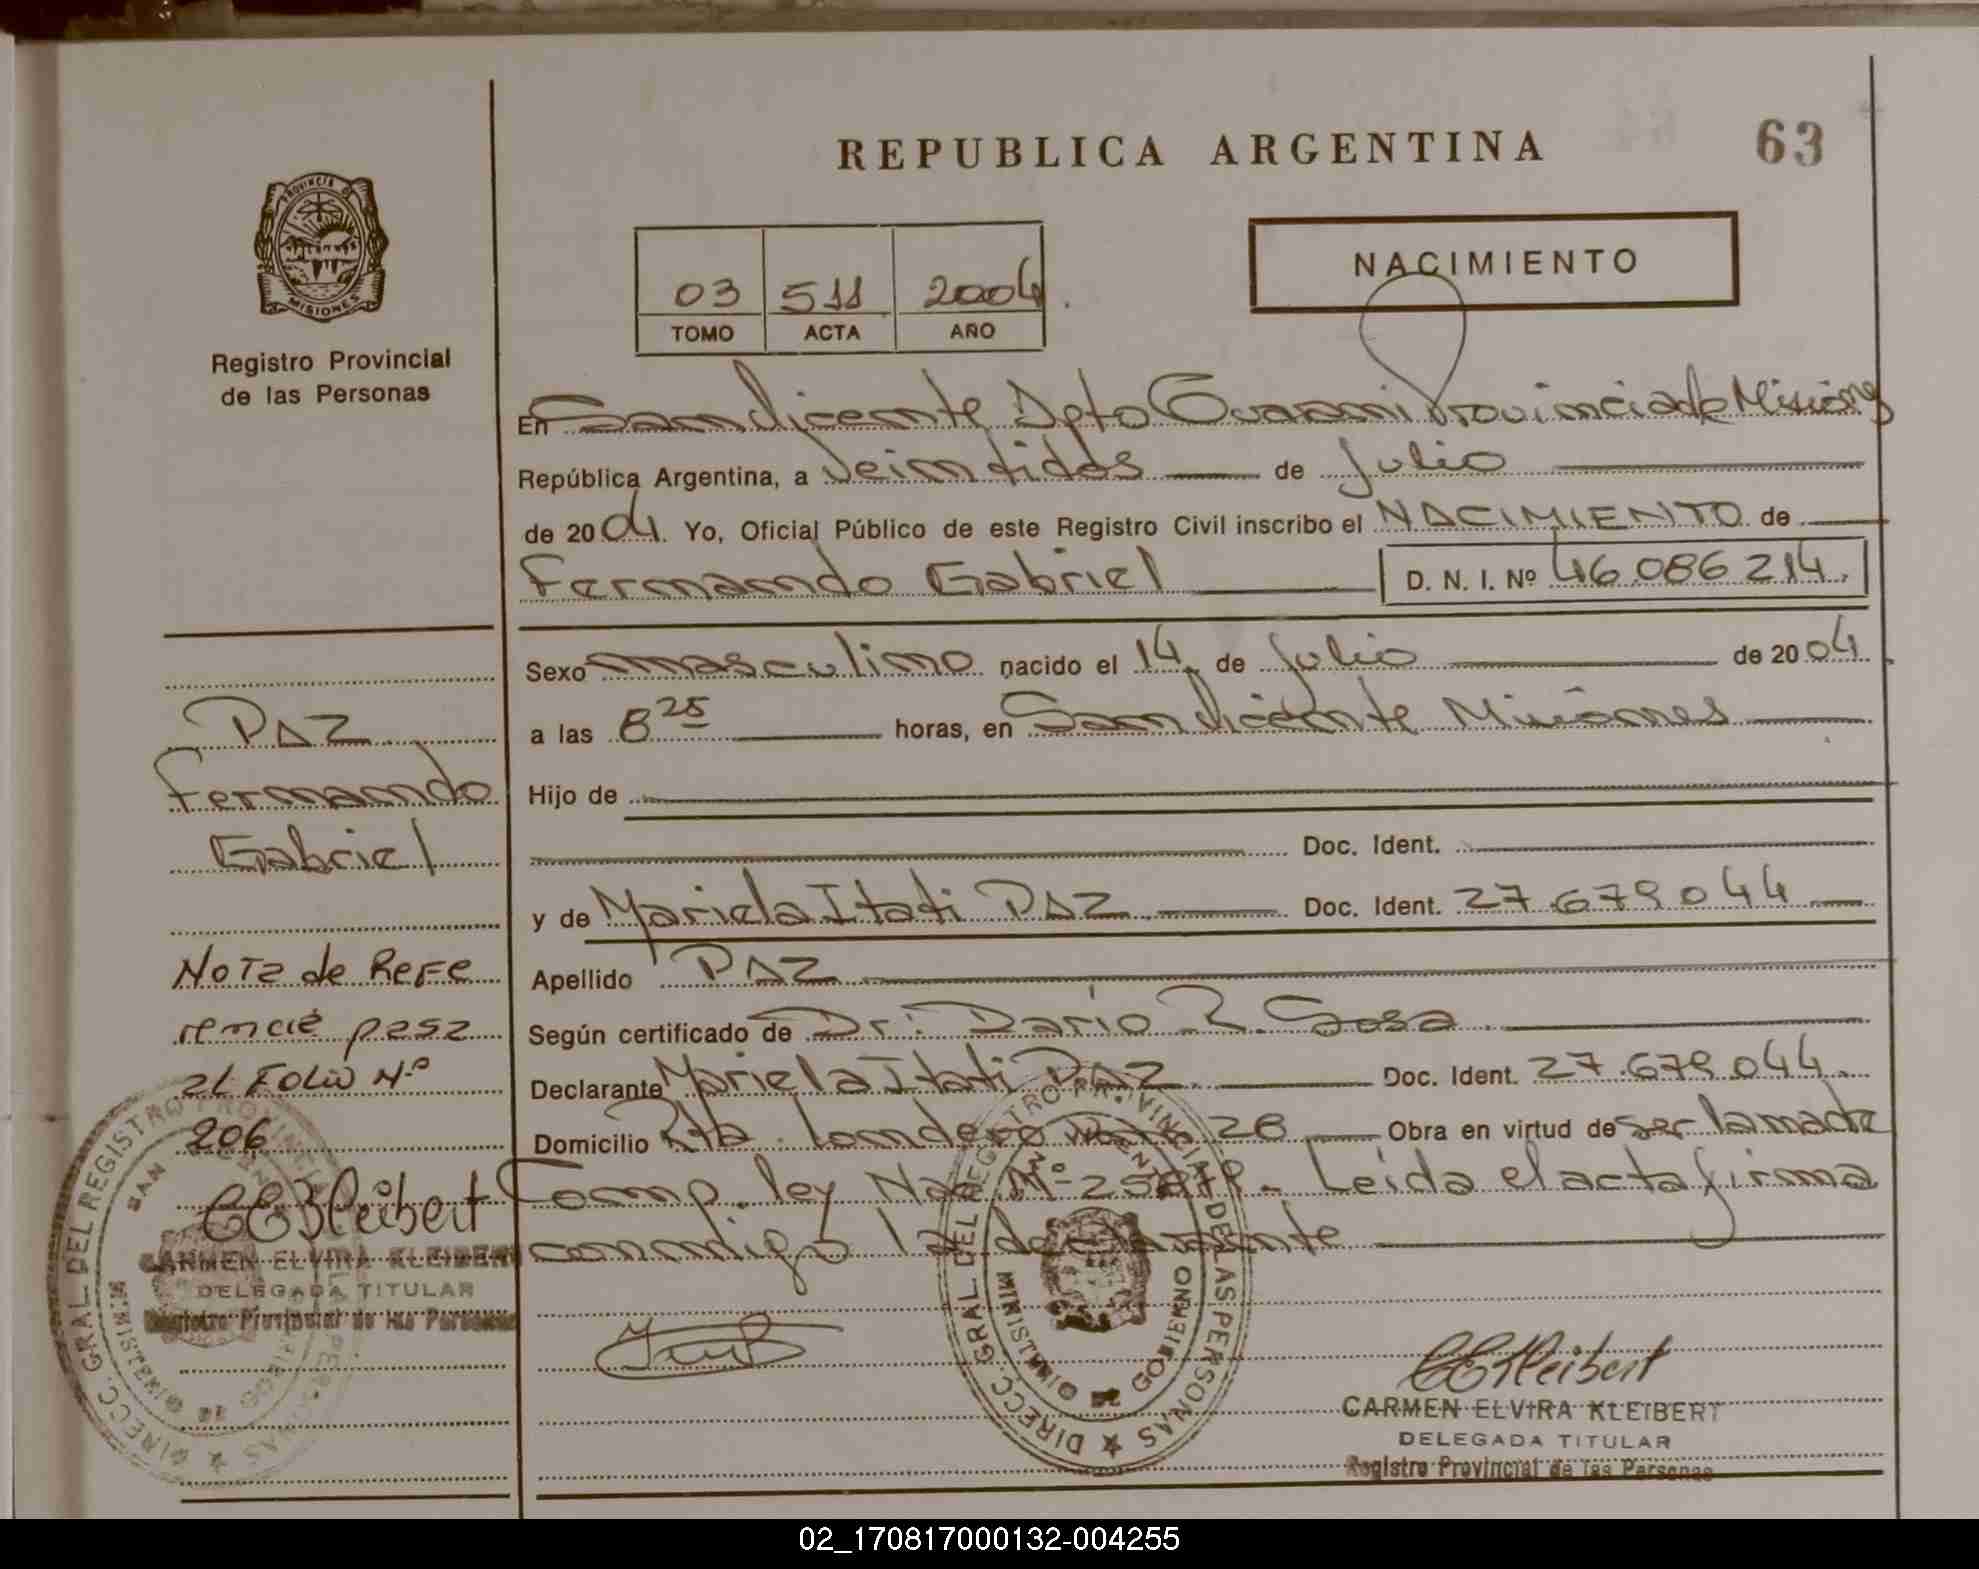 REPUBLICA ARGENTINA
63
PROVINCIA DE
MISIONES
Registro Provincial
de las Personas
03 511 2004
TOMO ACTA AÑO
NACIMIENTO
En San Vicente Dpto Guarani Provincia de Misiones
República Argentina, a Veintidos de Julio
de 2004. Yo, Oficial Público de este Registro Civil inscribo el NACIMIENTO de
Fernando Gabriel D. N. I. Nº 46.086.214.
Sexo masculino nacido el 14 de Julio de 2004
a las 8 25 horas, en San Vicente Misiones
Hijo de
Doc. Ident.
y de Mariela Itati PAZ Doc. Ident. 27.679.044
Apellido PAZ
Según certificado de Dr. Dario R. Sosa
Declarante Mariela Itati PAZ Doc. Ident. 27.679.044
Domicilio 28 Obra en virtud de ser la madre
Comp. ley Nac. Nº Leida el acta firma
conmigo la declarante
PAZ
Fernando
Gabriel
Nota de Refe
rencia pasa
al Folio Nº
206
CEKleibert
CARMEN ELVIRA KLEIBERT
DELEGADA TITULAR
Registro Provincial de las Personas
DIRECC. GRAL. DEL REGISTRO PROVINCIAL DE LAS PERSONAS
MINISTERIO DE GOBIERNO
CEKleibert
CARMEN ELVIRA KLEIBERT
DELEGADA TITULAR
Registro Provincial de las Personas
02_170817000132-004255